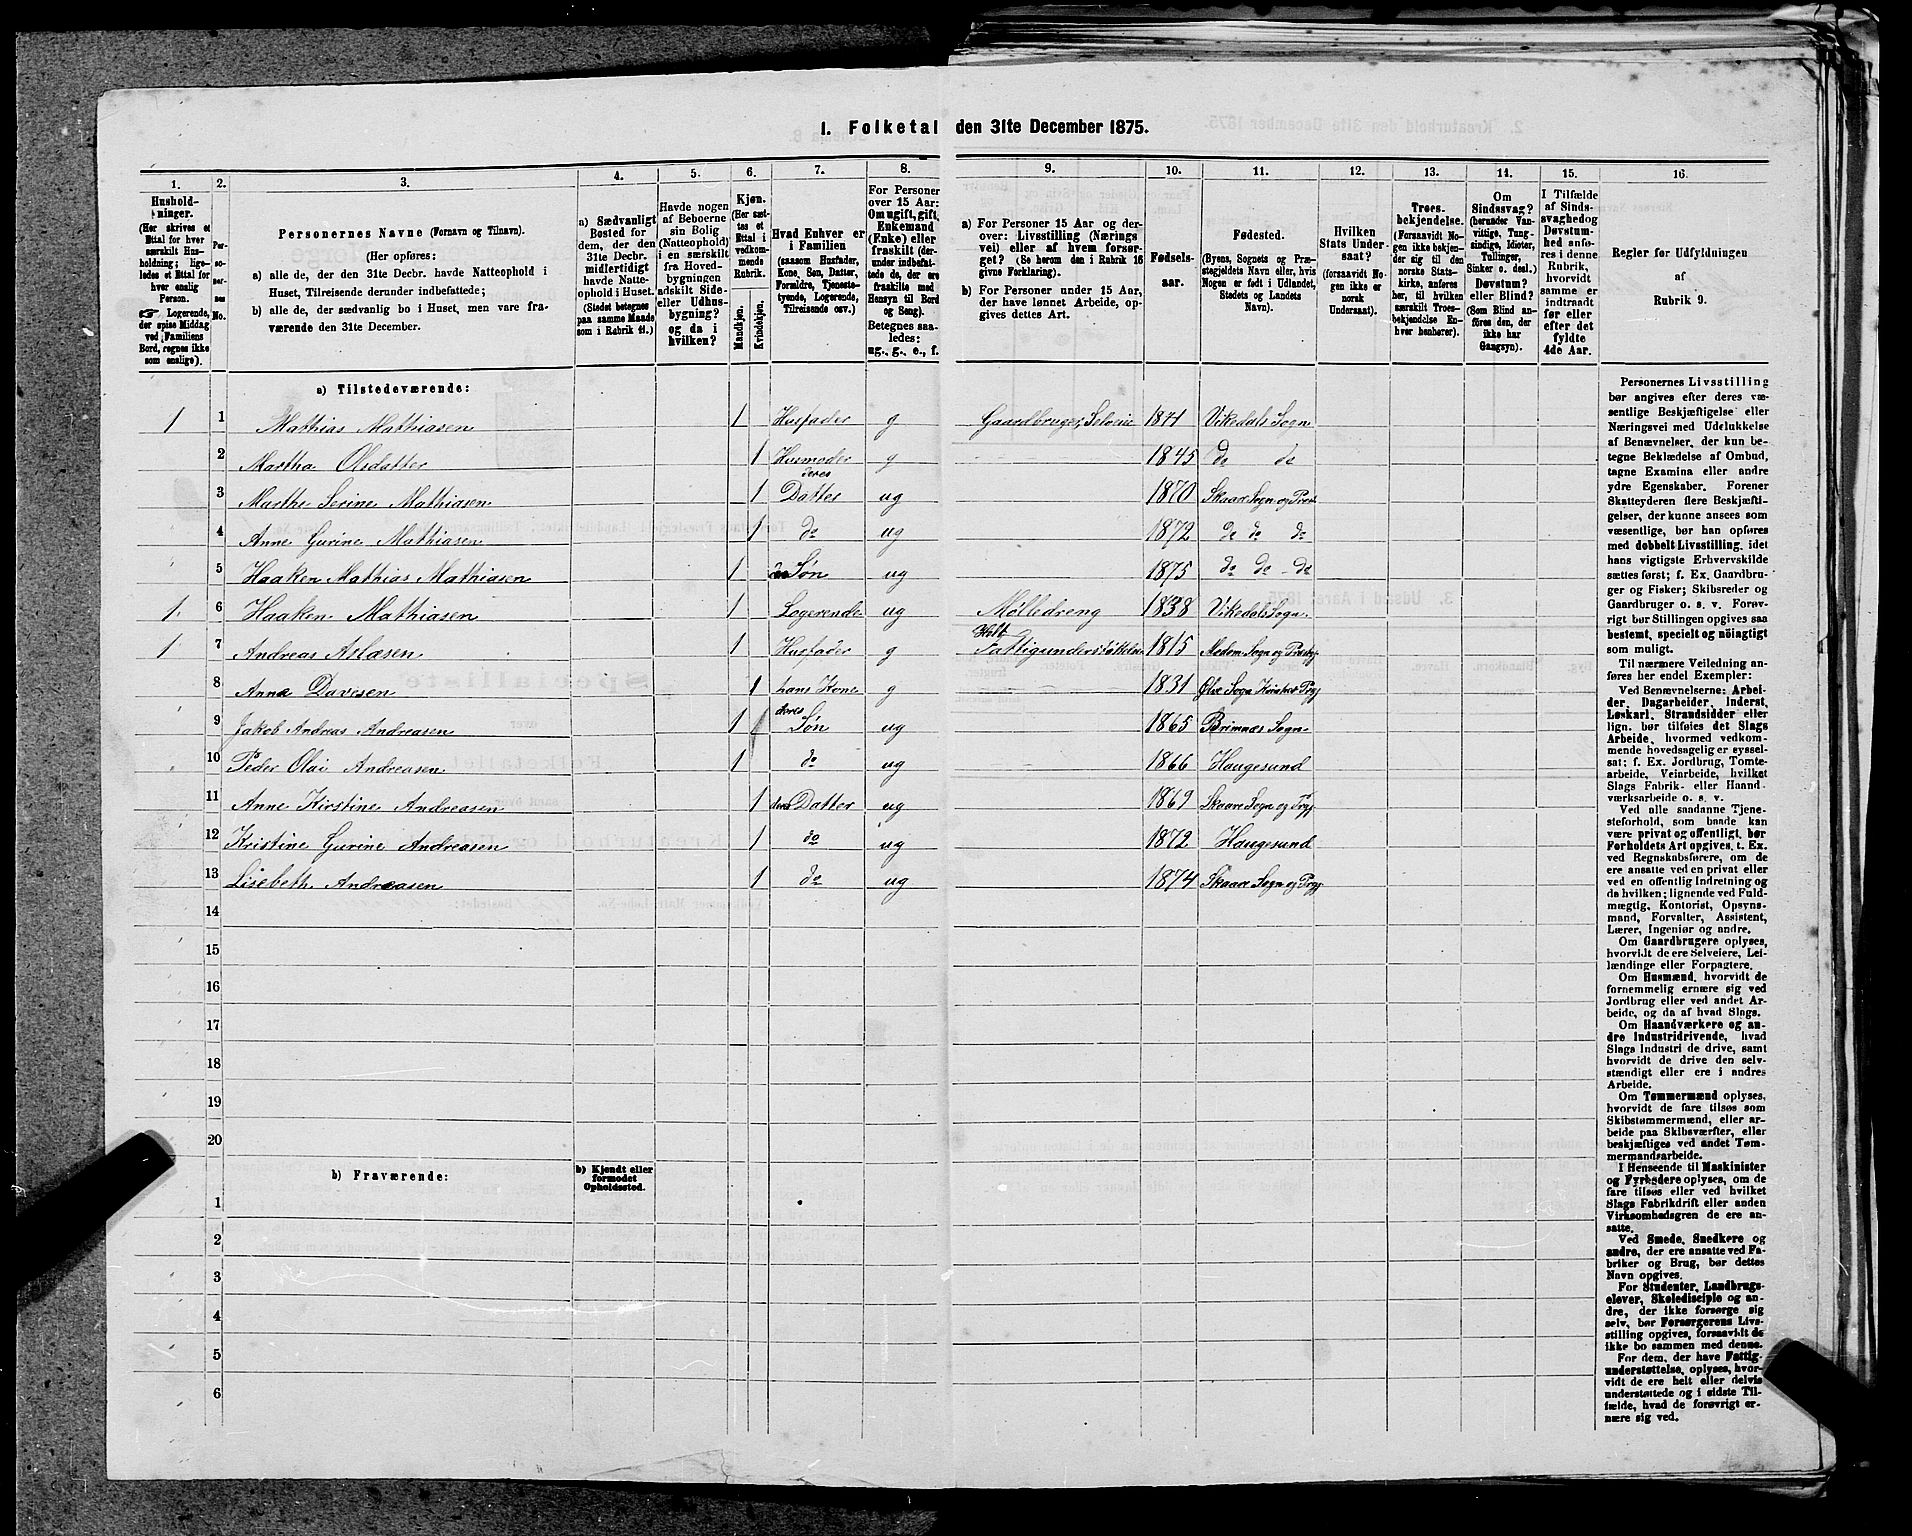 1. Folketal den 31te December 1875.
1. 2. 3. 4. 5. 6. 7. 8. 9. 10. 11. 12. 13. 14. 15. 16.
Hushold-
ninger.
(Her skrives et
Ettal for hver
særskilt Hus-
holdning; lige-
ledes et Ettal for
hver enslig
Person.
☞ Logerende,
der spise Middag
ved Familiens
Bord, regnes ikke
som enslige).
Per-
so-
ner-
nes
No.
Personernes Navne (Fornavn og Tilnavn).
(Her opføres:
a) alle de, der den 31te Decbr. havde Natteophold i
Huset, Tilreisende derunder indbefattede;
b) alle de, der sædvanlig bo i Huset, men vare fra-
værende den 31te December.
a) Sædvanligt
Bosted for
dem, der den
31te Decbr.
midlertidigt
havde Natte-
ophold i Huset.
(Stedet betegnes
paa samme Maade
som i Rubrik 11.)
Havde nogen
af Beboerne
sin Bolig
(Natteophold)
i en særskilt
fra Hoved-
bygningen
adskilt Side-
eller Udhus-
bygning?
og da i
hvilken?
Kjøn.
(Her sæt-
tes et
Ettal i
vedkom-
mende
Rubrik.
Mandkjøn.
Kvindekjøn.
Hvad Enhver er
i Familien
(saasom Husfader,
Kone, Søn, Datter,
Forældre, Tjeneste-
tyende, Logerende,
Tilreisende osv.)
For Personer
over 15 Aar:
Om ugift, gift,
Enkemand
(Enke) eller
fraskilt (der-
under indbefat-
tede de, der ere
fraskilte med
Hensyn til Bord
og Seng).
Betegnes saa-
ledes:
ug., g., e., f.
a) For Personer 15 Aar og der-
over: Livsstilling (Nærings
vei) eller af hvem forsør-
get? (Se herom den i Rubrik 16
givne Forklaring).
b) For Personer under 15 Aar,
der have lønnet Arbeide, op-
gives dettes Art.
Fødsels-
aar.
Fødested.
(Byens, Sognets og Præ-
stegjeldets Navn eller, hvis
Nogen er født i Udlandet,
Stedets og Landets
Navn).
Hvilken
Stats Under-
saat?
(forsaavidt No-
gen ikke er
norsk
Undersaat).
Troes-
bekjendelse.
(Forsaavidt No-
gen ikke bekjen-
der sig til den
norske Stats-
kirke, anføres
her, til hvilken
særskilt Troes-
bekjendelse En-
hver henhører).
Om
Sindssvag?
(herunder Van-
vittige, Tung-
sindige, Idioter,
Tullinger,
Sinker o. desl.)
Døvstum?
eller Blind?
(Som Blind an-
føres den, der
ikke har
Gangsyn).
I Tilfælde
af Sinds-
svaghed og
Døvstum-
hed anfø-
res i denne
Rubrik,
hvorvidt
samme er
indtraadt
før eller
efter det
fyldte
4de Aar.
Regler før Udfyldningen
af
Rubrik 9.
a) Tilstedeværende:
1 1 Mathias Mathiasen 1 Husfader g Gaardbruger, Selveier 1841 Vikedals Sogn
2 Martha Olsdatter 1 Husmoder g 1845 do do
3 Marthe Serine Mathiasen 1 deres Datter ug 1870 Skaar Sogn og Præst
4 Anne Gurine Mathiasen 1 do ug 1872 do do do
5 Haaken Mathias Mathiasen 1 Søn ug 1875 do do do
1. 6 Haaken Mathiasen 1 Logerende ug Mølledreng 1838 Vikedals Sogn.
1 7 Andreas Aslasen 1 Husfader g Helt Fattigunderstøttelse 1815
8 Anna Davesen 1 hans Kone g 1831
9 Jakob Andreas Andreasen 1 deres Søn ug 1865 Sogn
10 Peder Olai Andreasen 1 do ug 1866 Haugesund
11 Anne Kirstine Andreasen 1 deres Datter ug 1869 Skaare Sogn og Prgj
12 Kristine Gurine Andreasen 1 do ug 1872 Haugesund
13 Lisebeth Andreasen 1 do ug 1874 Skaare Sogn og Prgj
14
15
16
17
18
19
20
b) Fraværende:
b) Kjendt eller
formodet
Opholdssted.
1
2
3
4
5
6
Personernes Livsstilling
bør angives efter deres væ-
sentlige Beskjæftigelse eller
Næringsvei med Udelukkelse
af Benævnelser, der kun be-
tegne Beklædelse af Ombud,
tagne Examina eller andre
ydre Egenskaber. Forener
Skatteyderen flere Beskjæfti-
gelser, der kunne ansees som
væsentlige, bør han opføres
med dobbelt Livsstilling, idet
hans vigtigste Erhvervskilde
sættes først; f. Ex. Gaardbru-
ger og Fisker; Skibsreder og
Gaardbruger o. s. v. Forøv-
rigt bør Stillingen opgives saa
bestemt, specielt og nøiagtigt
som muligt.
Til nærmere Veiledning an-
føres her endel Exempler:
Ved Benævnelserne: Arbei-
der, Dagarbeider, Inderst,
Løskarl, Strandsidder eller
lign. bør tilføies det Slags
Arbeide, hvormed vedkom-
mende hovedsagelig er syssel-
sat; f. Ex. Jordbrug, Tomte-
arbeide, Veiarbeide, hvilket
Slags Fabrik- eller Haand-
værksarbeide o. s. v.
Ved alle saadanne Tjene-
steforhold, som baade kan
være privat og offentligt, bør
Forholdets Art opgives, t. Ex.
ved Regnskabsførere, om de
ere ansatte ved en privat eller
ved en offentlig Indretning og
da hvilken; lignende ved Fuld-
mægtig, Kontorist, Opsyns-
mand, Forvalter, Assistent,
Lærer, Ingeniør og andre.
Om Gaardbrugere oplyses,
hvorvidt de ere Selveiere, Lei-
lændinge eller Forpagtere.
Om Husmænd, hvorvidt de
fornemmelig ernære sig ved
Jordbrug eller ved andet Ar-
beide, og da af hvad Slags.
Om Haandværkere og an-
dre Industridrivende, hvad
Slags Industri de drive, samt
hvorvidt de drive den selv-
stændigt eller ere i andres
Arbeide.
Om Tømmermænd oplyses,
hvorvidt de fare tilsøs som
Skibstømmermænd, eller ar-
beide paa Skibsværfter, eller
beskjæftiges ved andet Tøm-
mermandsarbeide.
I Henseende til Maskinister
og Fyrbødere oplyses, om de
fare tilsøs eller ved hvilket
Slags Fabrikdrift eller anden
Virksomhedsgren de ere an-
satte.
Ved Smede, Snedkere og
andre, der ere ansatte ved Fa-
briker og Brug, bør dettes
Navn opgives.
For Studenter, Landbrugs-
elever, Skoledisciple og an-
dre, der ikke forsørge sig
selv, bør Forsørgerens Livs-
stilling opgives, forsaavidt de
ikke bo sammen med denne.
For dem, der have Fattig-
understøttelse, oplyses, hvor-
vidt de ere helt eller delvis
understøttede og i sidste Til-
fælde, hvad de forøvrigt er-
nære sig ved.